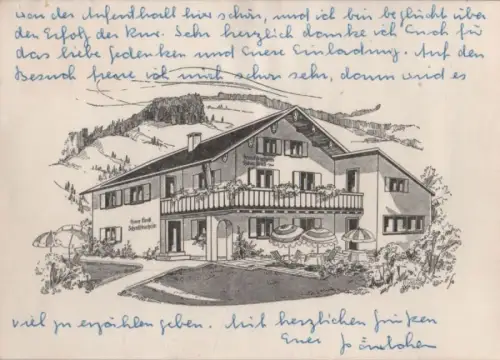 war der Aufenthalt hier schön, und ich bin beglückt über
den Erfolg der Kur. Sehr herzlich danke ich Euch für
das liebe Gedenken und Euere Einladung. Auf den
Besuch freue ich mich schon sehr, dann wird es
Haus Dorli
viel zu erzählen geben. Mit herzlichen Grüßen
Euer